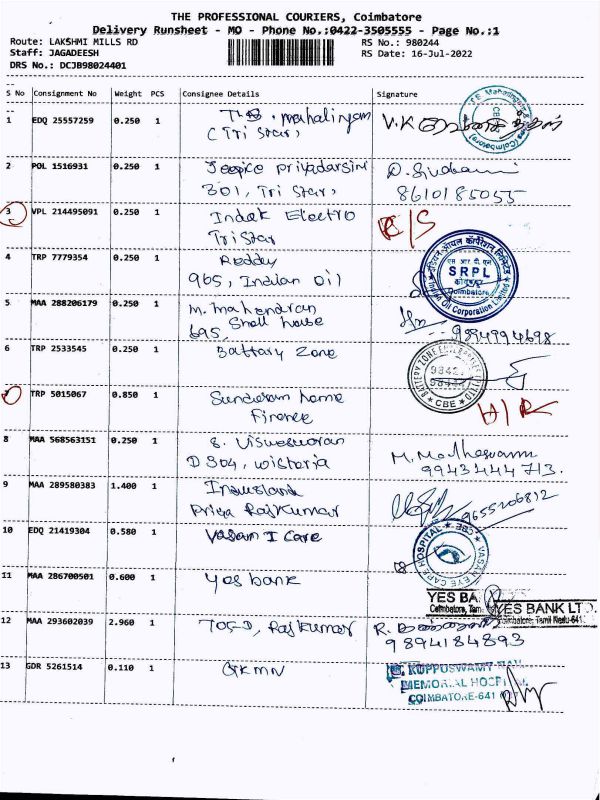 THE PROFESSIONAL COURIERS, Coimbatore
Delivery Runsheet - MO - Phone No.:0422-3505555 - Page No.:1
Route: LAKSHMI MILLS RD RS No.: 980244
Staff: JAGADEESH RS Date: 16-Jul-2022
DRS No.: DCJB98024401
S No Consignment No Weight PCS Consignee Details Signature
1 EDQ 25557259 0.250 1 Mahalingam V.K
(Tri Star,
2 POL 1516931 0.250 1 Priyadarsini
301, Tri Star, 8610185055
3 VPL 214495091 0.250 1 Indek Electro R/S
Tri Star
4 TRP 7779354 0.250 1 Reddy
965, Indian Oil
SRPL
Coimbatore
Indian Oil Corporation Limited
5 MAA 288206179 0.250 1 M. Mahendran
695, Small house 9894994698
6 TRP 2533545 0.250 1 Battary Zone
CBE
7 TRP 5015067 0.850 1 Sundaram home H/R
Finance
8 MAA 568563151 0.250 1 S. Visweswaran M. Matheswaran
D304, Wistaria 9943444713.
9 MAA 289580383 1.400 1
Priya Rajkumar 9655206812
10 EDQ 21419304 0.580 1 Vasam I Care
VASAN EYE CARE HOSPITAL
11 MAA 286700501 0.600 1 Yes bank
YES BA
YES BANK LTD.
Coimbatore, Tamil Nadu-641
12 MAA 293602039 2.960 1 Rajkumar R.
9894184893
13 GDR 5261514 0.110 1 GKMN
KUPPUSWAMY
MEMORIAL HOSPITAL
COIMBATORE-641